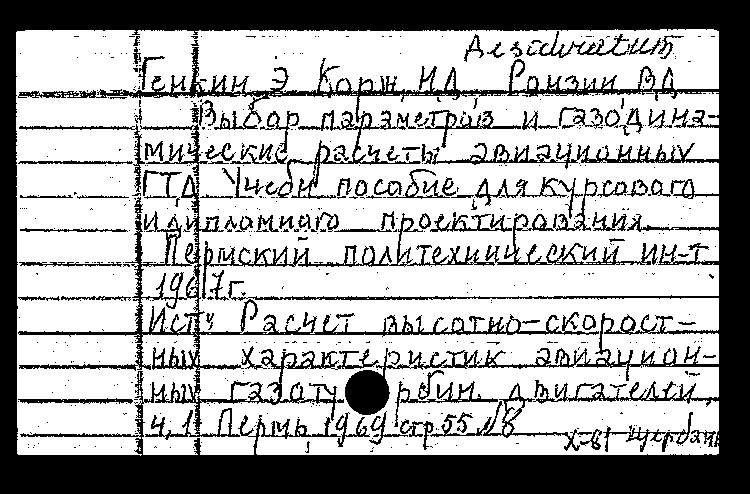 Desideratum
Генкин Э Корж, НД, Ронзин, ВД
Выбор параметров и газодина-
мические расчеты авиационных
ГТД Учебн пособие для курсового
и дипломного проектирования.
Пермский политехнический ин-т
1967г.
Ист: Расчет высотно-скорост-
ных характеристик авиацион-
ных газотурбин. двигателей,
ч,1 Пермь, 1969 стр 55 №8
X-81 Щербань